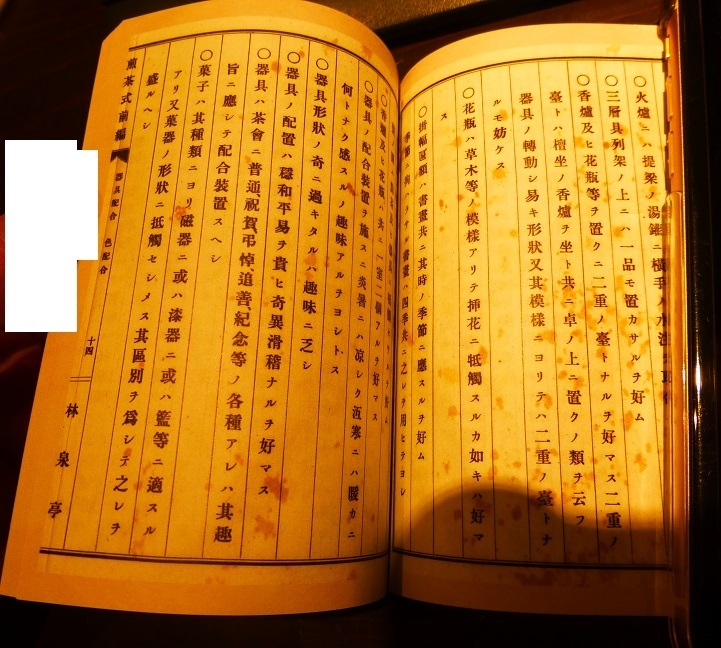 ○火爐ニハ提梁ノ湯罐ニ横手ノ
○三層具列架ノ上ニハ一品モ置カサルヲ好ム
○香爐及ヒ花瓶等ヲ置クニ二重ノ臺トナルヲ好マス二重ノ
臺トハ檀坐ノ香爐ヲ坐ト共ニ卓ノ上ニ置クノ類ヲ云フ
器具ノ轉動シ易キ形狀又其模樣ニヨリテハ二重ノ臺トナ
ルモ妨ケス
○花瓶ハ草木等ノ模樣アリテ挿花ニ牴觸スルカ如キハ好マ
ス
○掛幅區額ハ書畫共ニ其時ノ季節ニ應スルヲ好ム
書畫ハ四季共ニ之レヲ用ヒテヨシ
○香爐及ヒ花瓶ハ共ニ一室二個アルヲ好マス
○器具ノ配合裝置ヲ施スニ炎暑ニハ凉シク沍寒ニハ暖カニ
何トナク感スルノ趣味アルヲヨシトス
○器具形狀ノ奇ニ過キタルハ趣味ニ乏シ
○器具ノ配置ハ穩和平易ヲ貴ヒ奇異滑稽ナルヲ好マス
○器具ハ茶會ニ普通祝賀、弔悼、追善、紀念等ノ各種アレハ其趣
旨ニ應シテ配合裝置スヘシ
○菓子ハ其種類ニヨリ磁器ニ或ハ漆器ニ或ハ籃等ニ適スル
アリ又菓器ノ形狀ニ牴觸セシメス其區別ヲ爲シテ之レヲ
盛ルヘシ
煎茶式前編 器具配合 色配合 十四 林泉亭